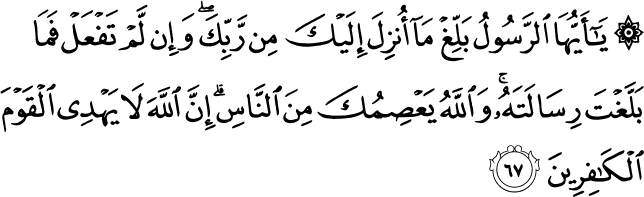 ۞ يَـٰٓأَيُّهَا ٱلرَّسُولُ بَلِّغْ مَآ أُنزِلَ إِلَيْكَ مِن رَّبِّكَ ۖ وَإِن لَّمْ تَفْعَلْ فَمَا
بَلَّغْتَ رِسَالَتَهُۥ ۚ وَٱللَّهُ يَعْصِمُكَ مِنَ ٱلنَّاسِ ۗ إِنَّ ٱللَّهَ لَا يَهْدِى ٱلْقَوْمَ
ٱلْكَـٰفِرِينَ ٦٧